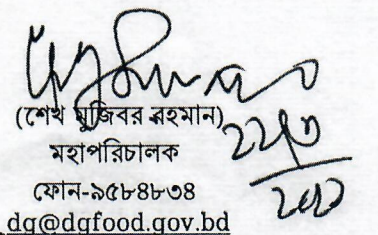 (শেখ মুজিবর রহমান)
মহাপরিচালক
ফোন-৯৫৮৪৮৩৪
dg@dgfood.gov.bd